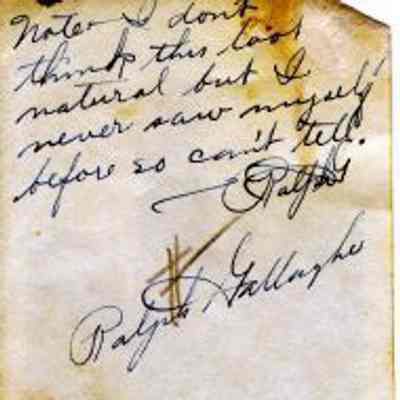 Note - I don't
think this look
natural but I
never saw myself
before so can't tell.
Ralph G
Ralph Gallagher